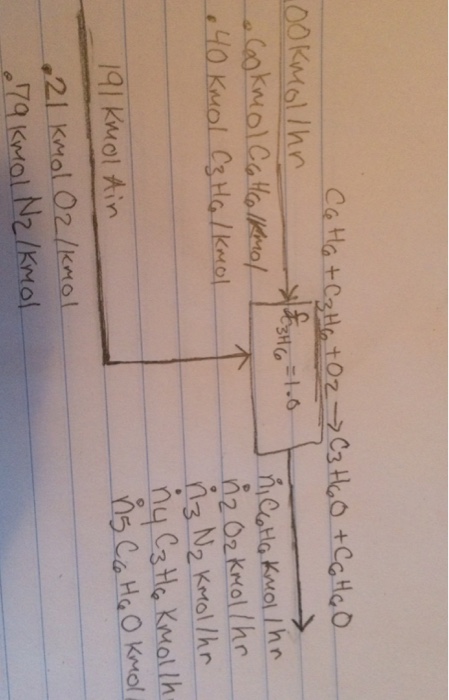 C6H6 + C3H6 + O2 → C3H6O + C6H6O
00 kmol/hr
.60 kmol C6H6/kmol
.40 kmol C3H6/kmol
f C3H6 = 1.0
191 kmol Air
.21 kmol O2/kmol
.79 kmol N2/kmol
ṅ1 C6H6 kmol/hr
ṅ2 O2 kmol/hr
ṅ3 N2 kmol/hr
ṅ4 C3H6 kmol/h
ṅ5 C6H6O kmol/